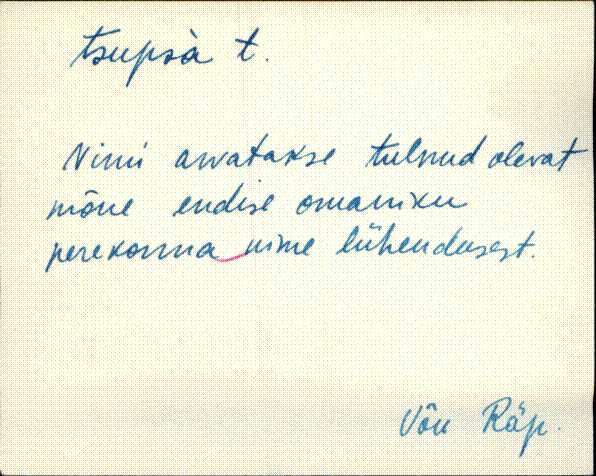 tsupsà t.
Nimi arvatakse tulnud olevat
mõne endise omaniku
perekonna nime lühendusest.
Võn Räp.